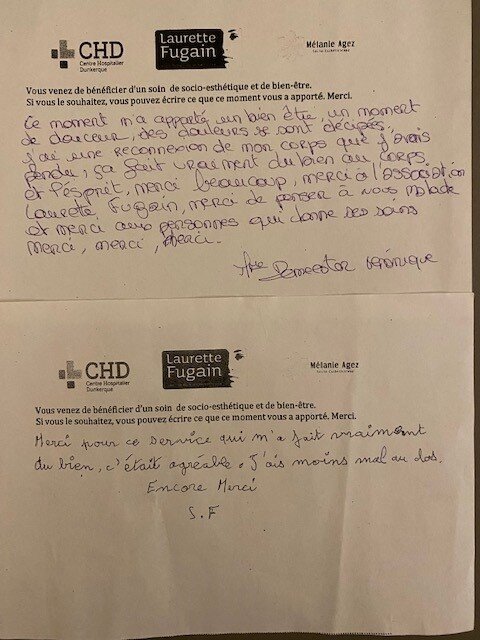 CHD
Centre Hospitalier
Dunkerque
Laurette
Fugain
Mélanie Agez
Vous venez de bénéficier d'un soin de socio-esthétique et de bien-être.
Si vous le souhaitez, vous pouvez écrire ce que ce moment vous a apporté. Merci.
Ce moment m'a apporté un bien être, un moment
de douceur, des douleurs se sont
j'ai une reconnexion de mon corps que j'avais
perdu, ça fait vraiment du bien au corps
et l'ésprêt, merci beaucoup, merci a l'association
Laurete Fugain, merci de penser à nous malade
et merci aux personnes qui donne ses soins
merci, merci, merci.
Véronique
CHD
Centre Hospitalier
Dunkerque
Laurette
Fugain
Mélanie Agez
Vous venez de bénéficier d'un soin de socio-esthétique et de bien-être.
Si vous le souhaitez, vous pouvez écrire ce que ce moment vous a apporté. Merci.
Merci pour ce service qui m'a fait vraiment
du bien, c'était agréable. J'ais moins mal au dos.
Encore Merci
S.F